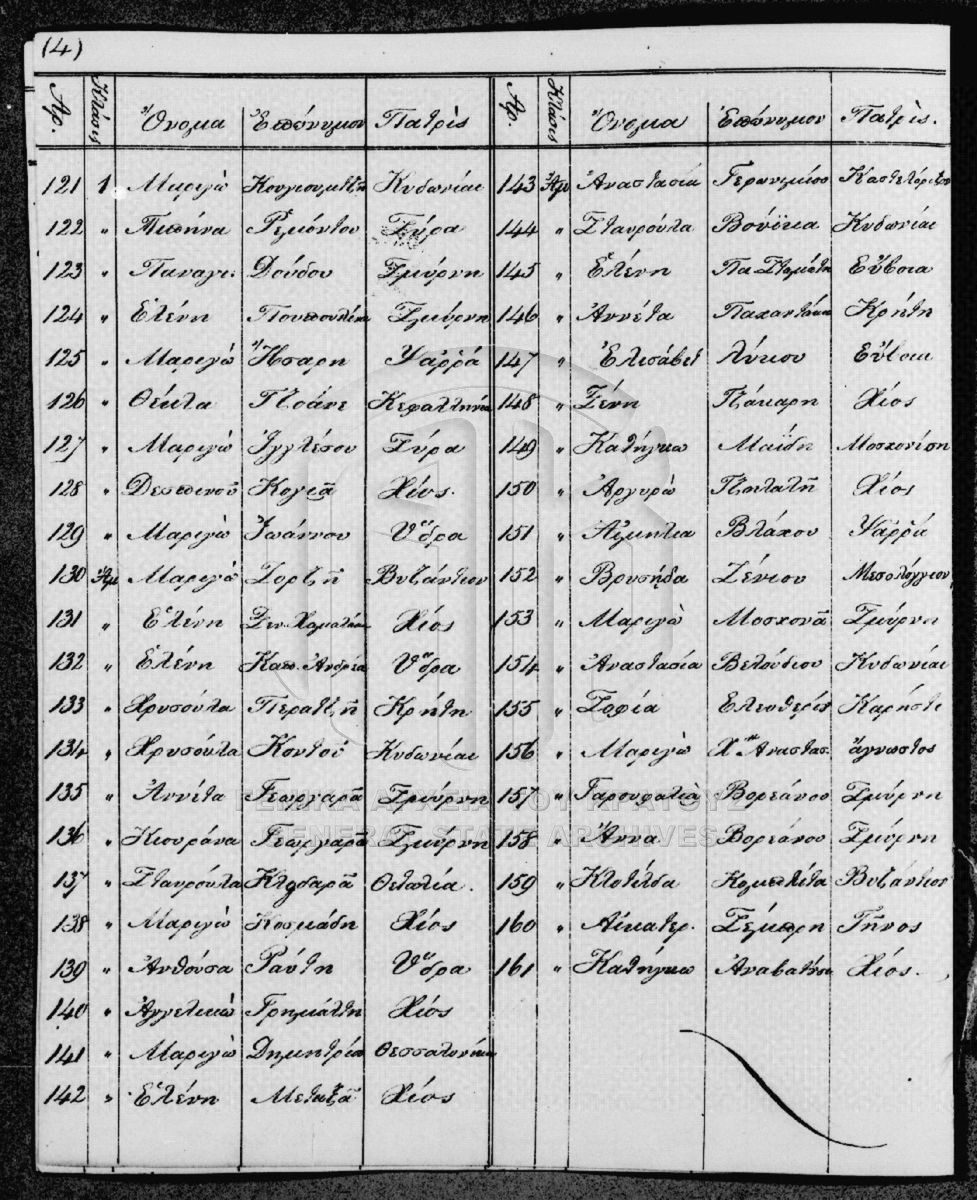 (4)
Ἀρ. Κλάσις Ὄνομα Ἐπώνυμον Πατρὶς
121 1 Μαριγὼ Κυδωνίαι
122 " Πιπήνα Ρεμόντου Σύρα
123 " Παναγι. Δούδου Σμύρνη
124 " Ἑλένη Σμύρνη
125 " Μαριγὼ Ἤσαρη Ψαῤῥά
126 " Θέκλα Τζοάνε Κεφαλληνία
127 " Μαριγὼ Ἰγγλέσου Σύρα
128 " Δεσπινοῦ Κογιᾶ Χίος.
129 " Μαριγὼ Ἰωάννου Ὕδρα
130 Ἀμ Μαριγὼ Ζορζῆ Βυζάντιον
131 " Ἑλένη Χίος
132 " Ἑλένη Καπ. Ἀνδρέα Ὕδρα
133 " Χρυσούλα Περατζῆ Κρήτη
134 " Χρυσούλα Κοντού Κυδωνίαι
135 " Ἀννέτα Γεωργαρᾶ Σμύρνη
136 " Κιουράνα Γεωργαρᾶ Σμύρνη
137 " Σταυρούλα Κλοδαρᾶ Θεταλία.
138 " Μαριγὼ Κοσμάδη Χίος
139 " Ἀνθούσα Ῥαύτη Ὕδρα
140 " Ἀγγελικὼ Γρημάλδη Χίος
141 " Μαριγὼ Δημητρίου Θεσσαλονίκη
142 " Ἑλένη Μεταξᾶ Χίος
Ἀρ. Κλάσις Ὄνομα Ἐπώνυμον Πατρὶς.
143 Ἀμ Ἀναστασία Γερωνιμίου Καστελόριζον
144 " Σταυρούλα Βούϊκα Κυδωνίαι
145 " Ἑλένη Πα Σταμάτη Εὔβοια
146 " Ἀννέτα Κρήτη
147 " Ἐλισάβετ Λύκου Εὔβοια
148 " Ξένη Πάκαρη Χίος
149 " Κατήγκω Μαΐδη Μοσχονίση
150 " Ἀργυρὼ Χίος
151 " Αἰμηλια Βλάχου Ψαῤῥά
152 " Βρυσηΐδα Ζένιου Μεσολόγγιον
153 " Μαριγὼ Μοσχονᾶ Σμύρνη
154 " Ἀναστασία Βελούδιου Κυδωνίαι
155 " Σοφία Ἐλευθερίου Κάρηστι
156 " Μαριγὼ Χ" Ἀναστασ. ἄγνωστος
157 " Γαρουφαλιὰ Βορεάνου Σμύρνη
158 " Ἄννα Βορεάνου Σμύρνη
159 " Κλοτίλδα Βυζάντιον
160 " Αἰκατερ. Σέμπρη Τῆνος
161 " Κατήγκω Ἀναβατήσι Χίος.
ΓΕΝΙΚΑ ΑΡΧΕΙΑ ΤΟΥ ΚΡΑΤΟΥΣ
GENERAL STATE ARCHIVES